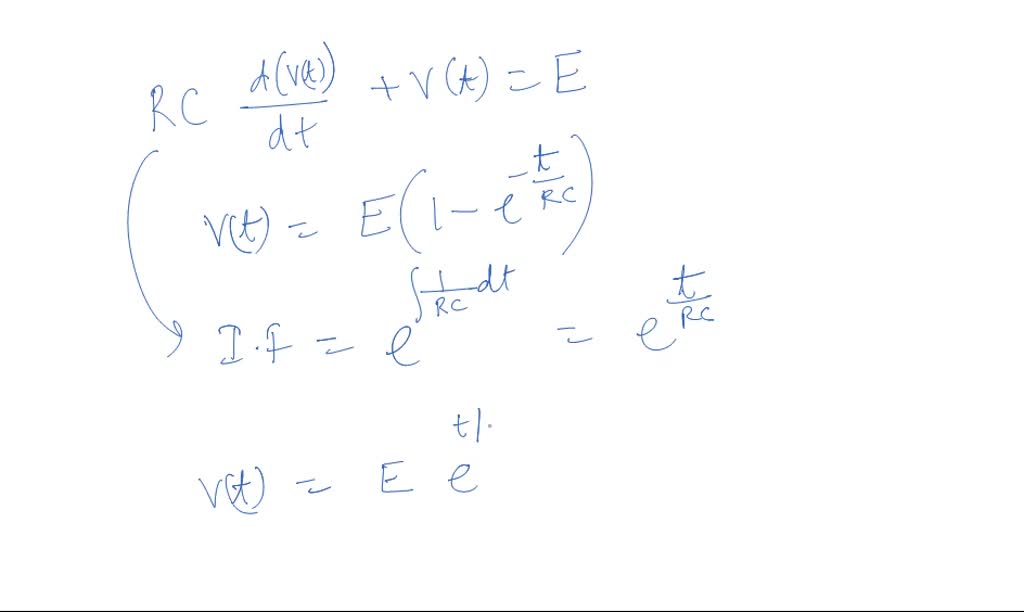 RC d(V(t))/dt + V(t) = E
V(t) = E(1 - e^{-t/RC})
I.f = e^{∫ 1/RC dt} = e^{t/RC}
V(t) = E e^{t/}